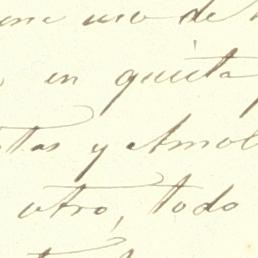 uso de
en quieta
tas y Amol
otro, todo